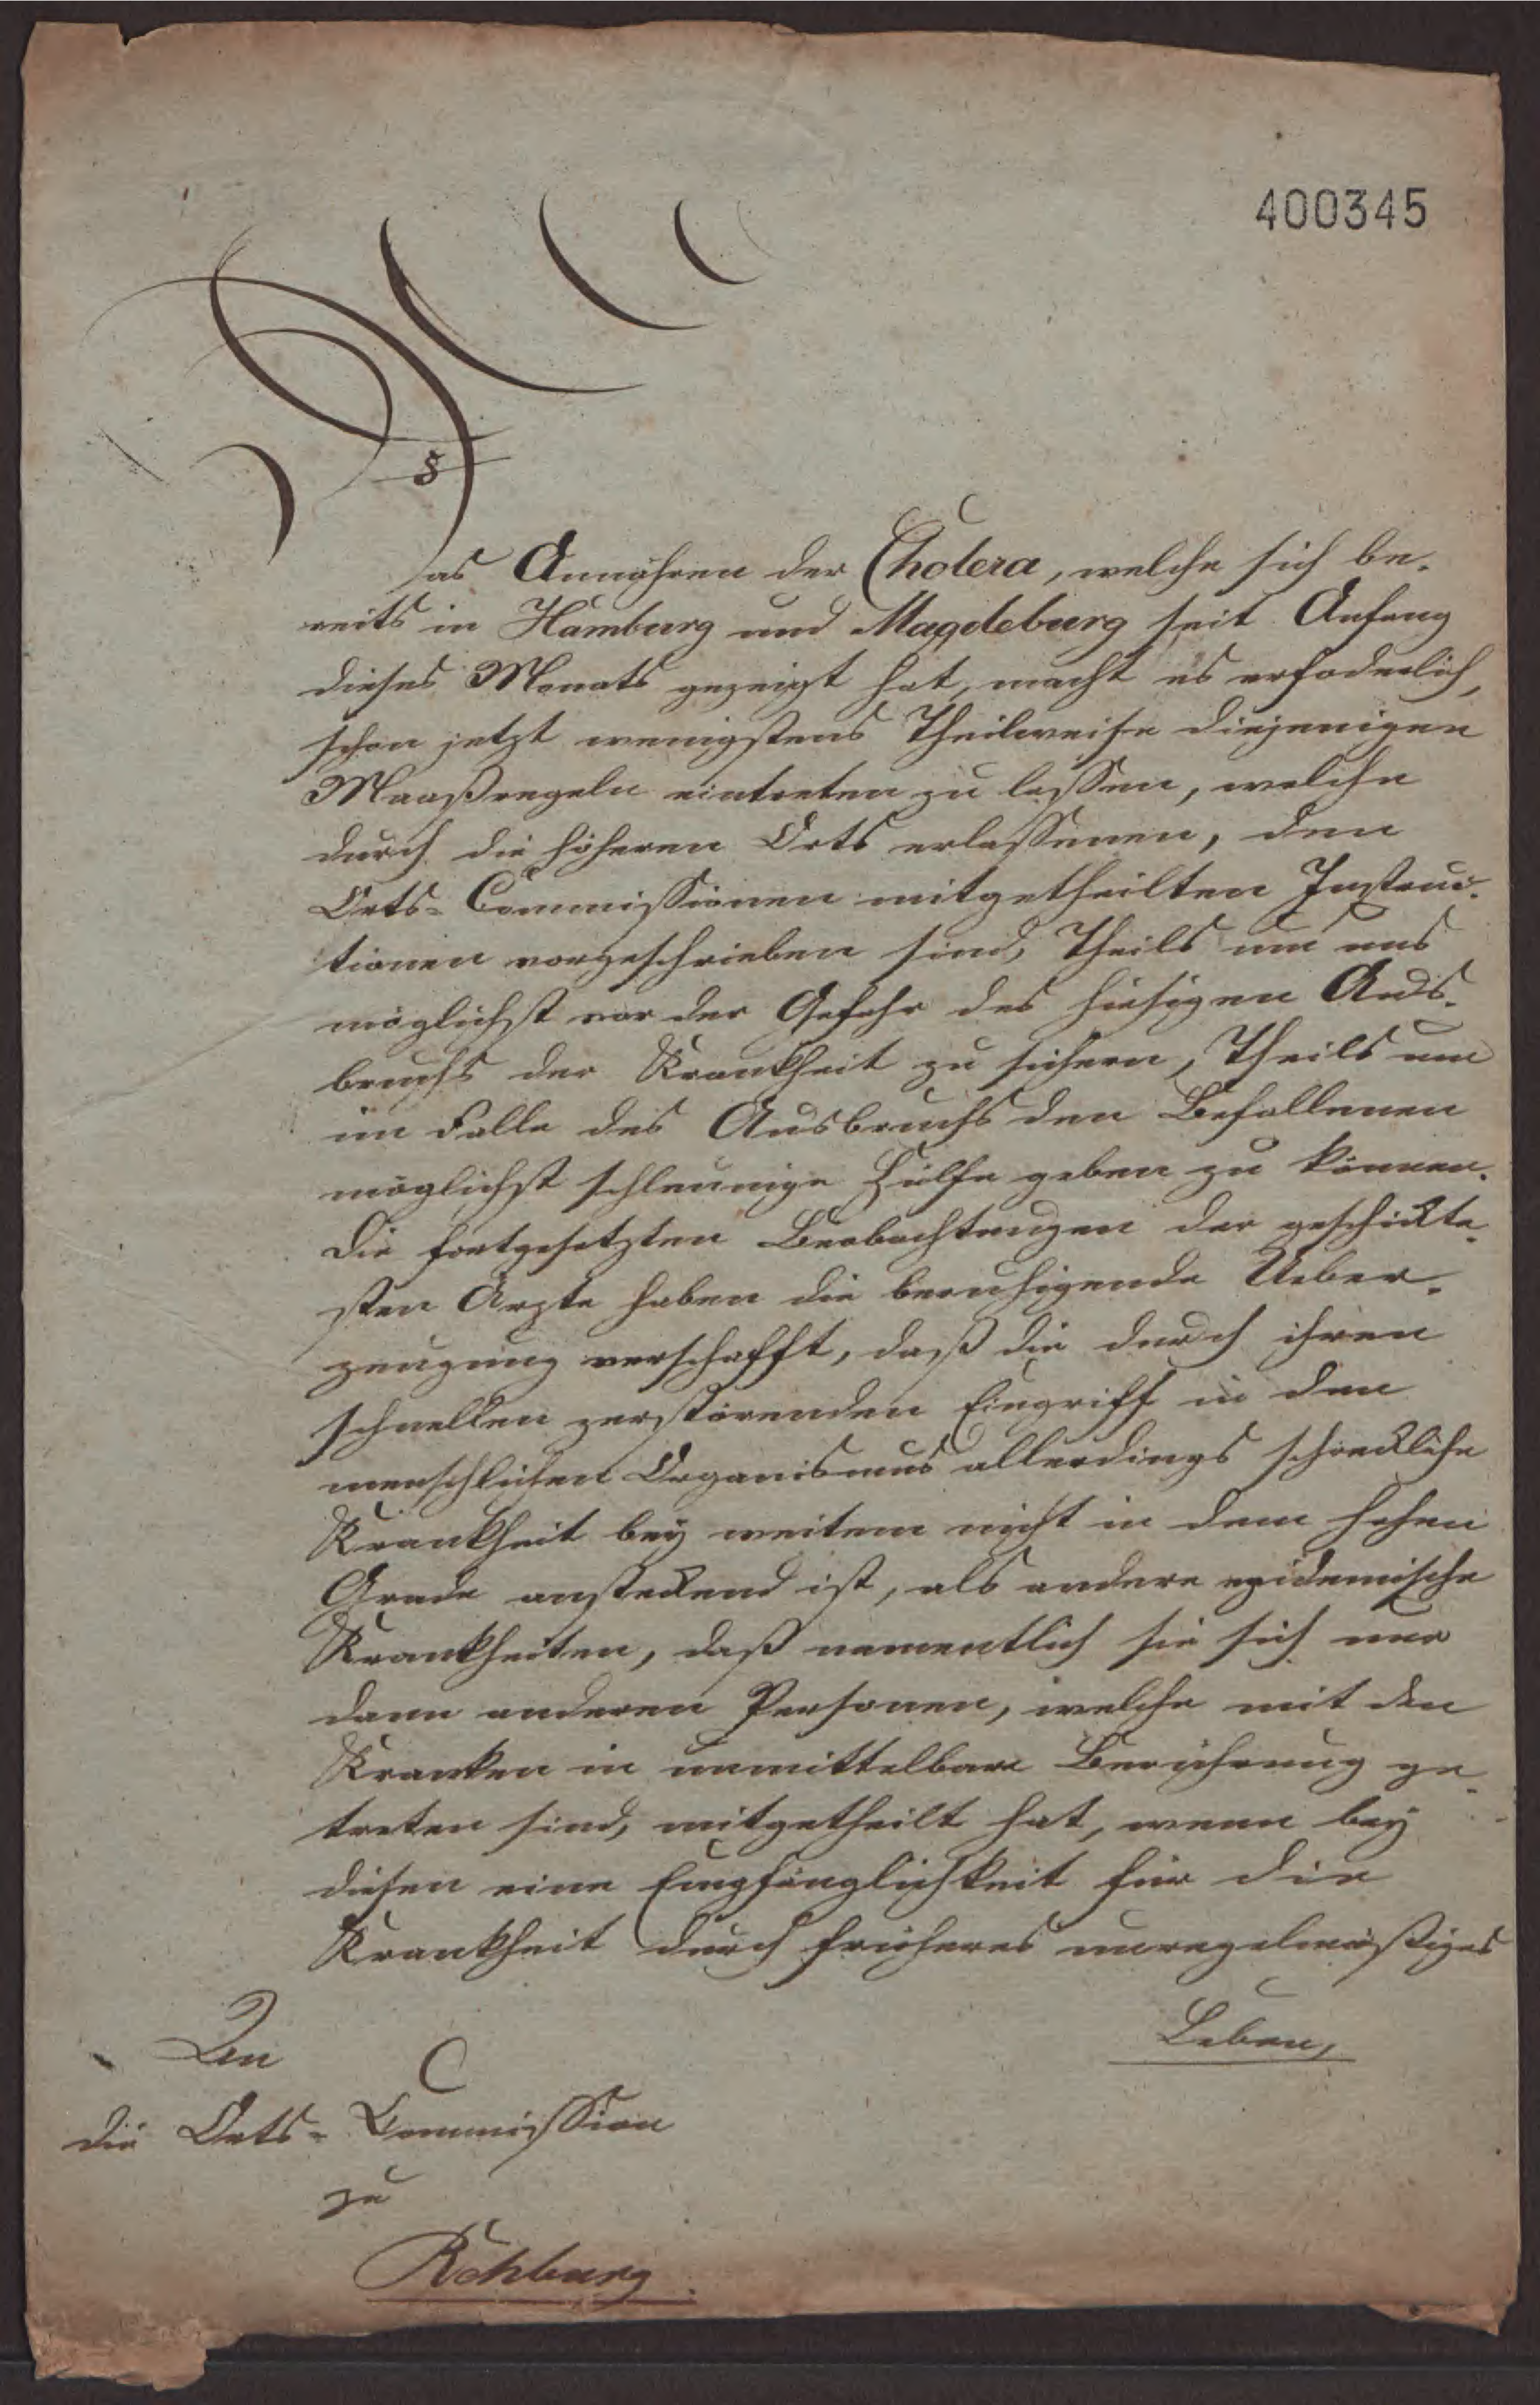 400345
Das Annähren der Cholera, welche sich be-
reits in Hamburg und Magdeburg seit Anfang
dieses Monats gezeigt hat, macht es erfoderlich,
schon jetzt wenigstens Theilweise diejenigen
Maaßregeln eintreten zu lassen, welche
durch die höheren Orts erlassenen, den
Orts-Commissionen mitgetheilten Instruc-
tionen vorgeschrieben sind, Theils um uns
möglichst vor der Gefahr des hiesigen Aus-
bruchs der Krankheit zu sichern, Theils um
im Falle des Ausbruchs den Befallenen
möglichst schleunige Hülfe geben zu können.
Die fortgesetzten Beobachtungen der geschickte-
sten Ärzte haben die beruhigende Ueber-
zeugung verschafft, daß die durch ihren
schnellen zerstörenden Eingriff in den
menschlichen Organismus allerdings schreckliche
Krankheit bey weitem nicht in dem hohen
Grade ansteckend ist, als andere epidemische
Krankheiten, daß namentlich sie sich nur
dann anderen Personen, welche mit den
Kranken in unmittelbare Berührung ge-
treten sind, mitgetheilt hat, wenn bey
diesen eine Empfänglichkeit für die
Krankheit durch früheres unregelmäßiges
Leben,
An
die Orts-Commission
zu
Rehburg.